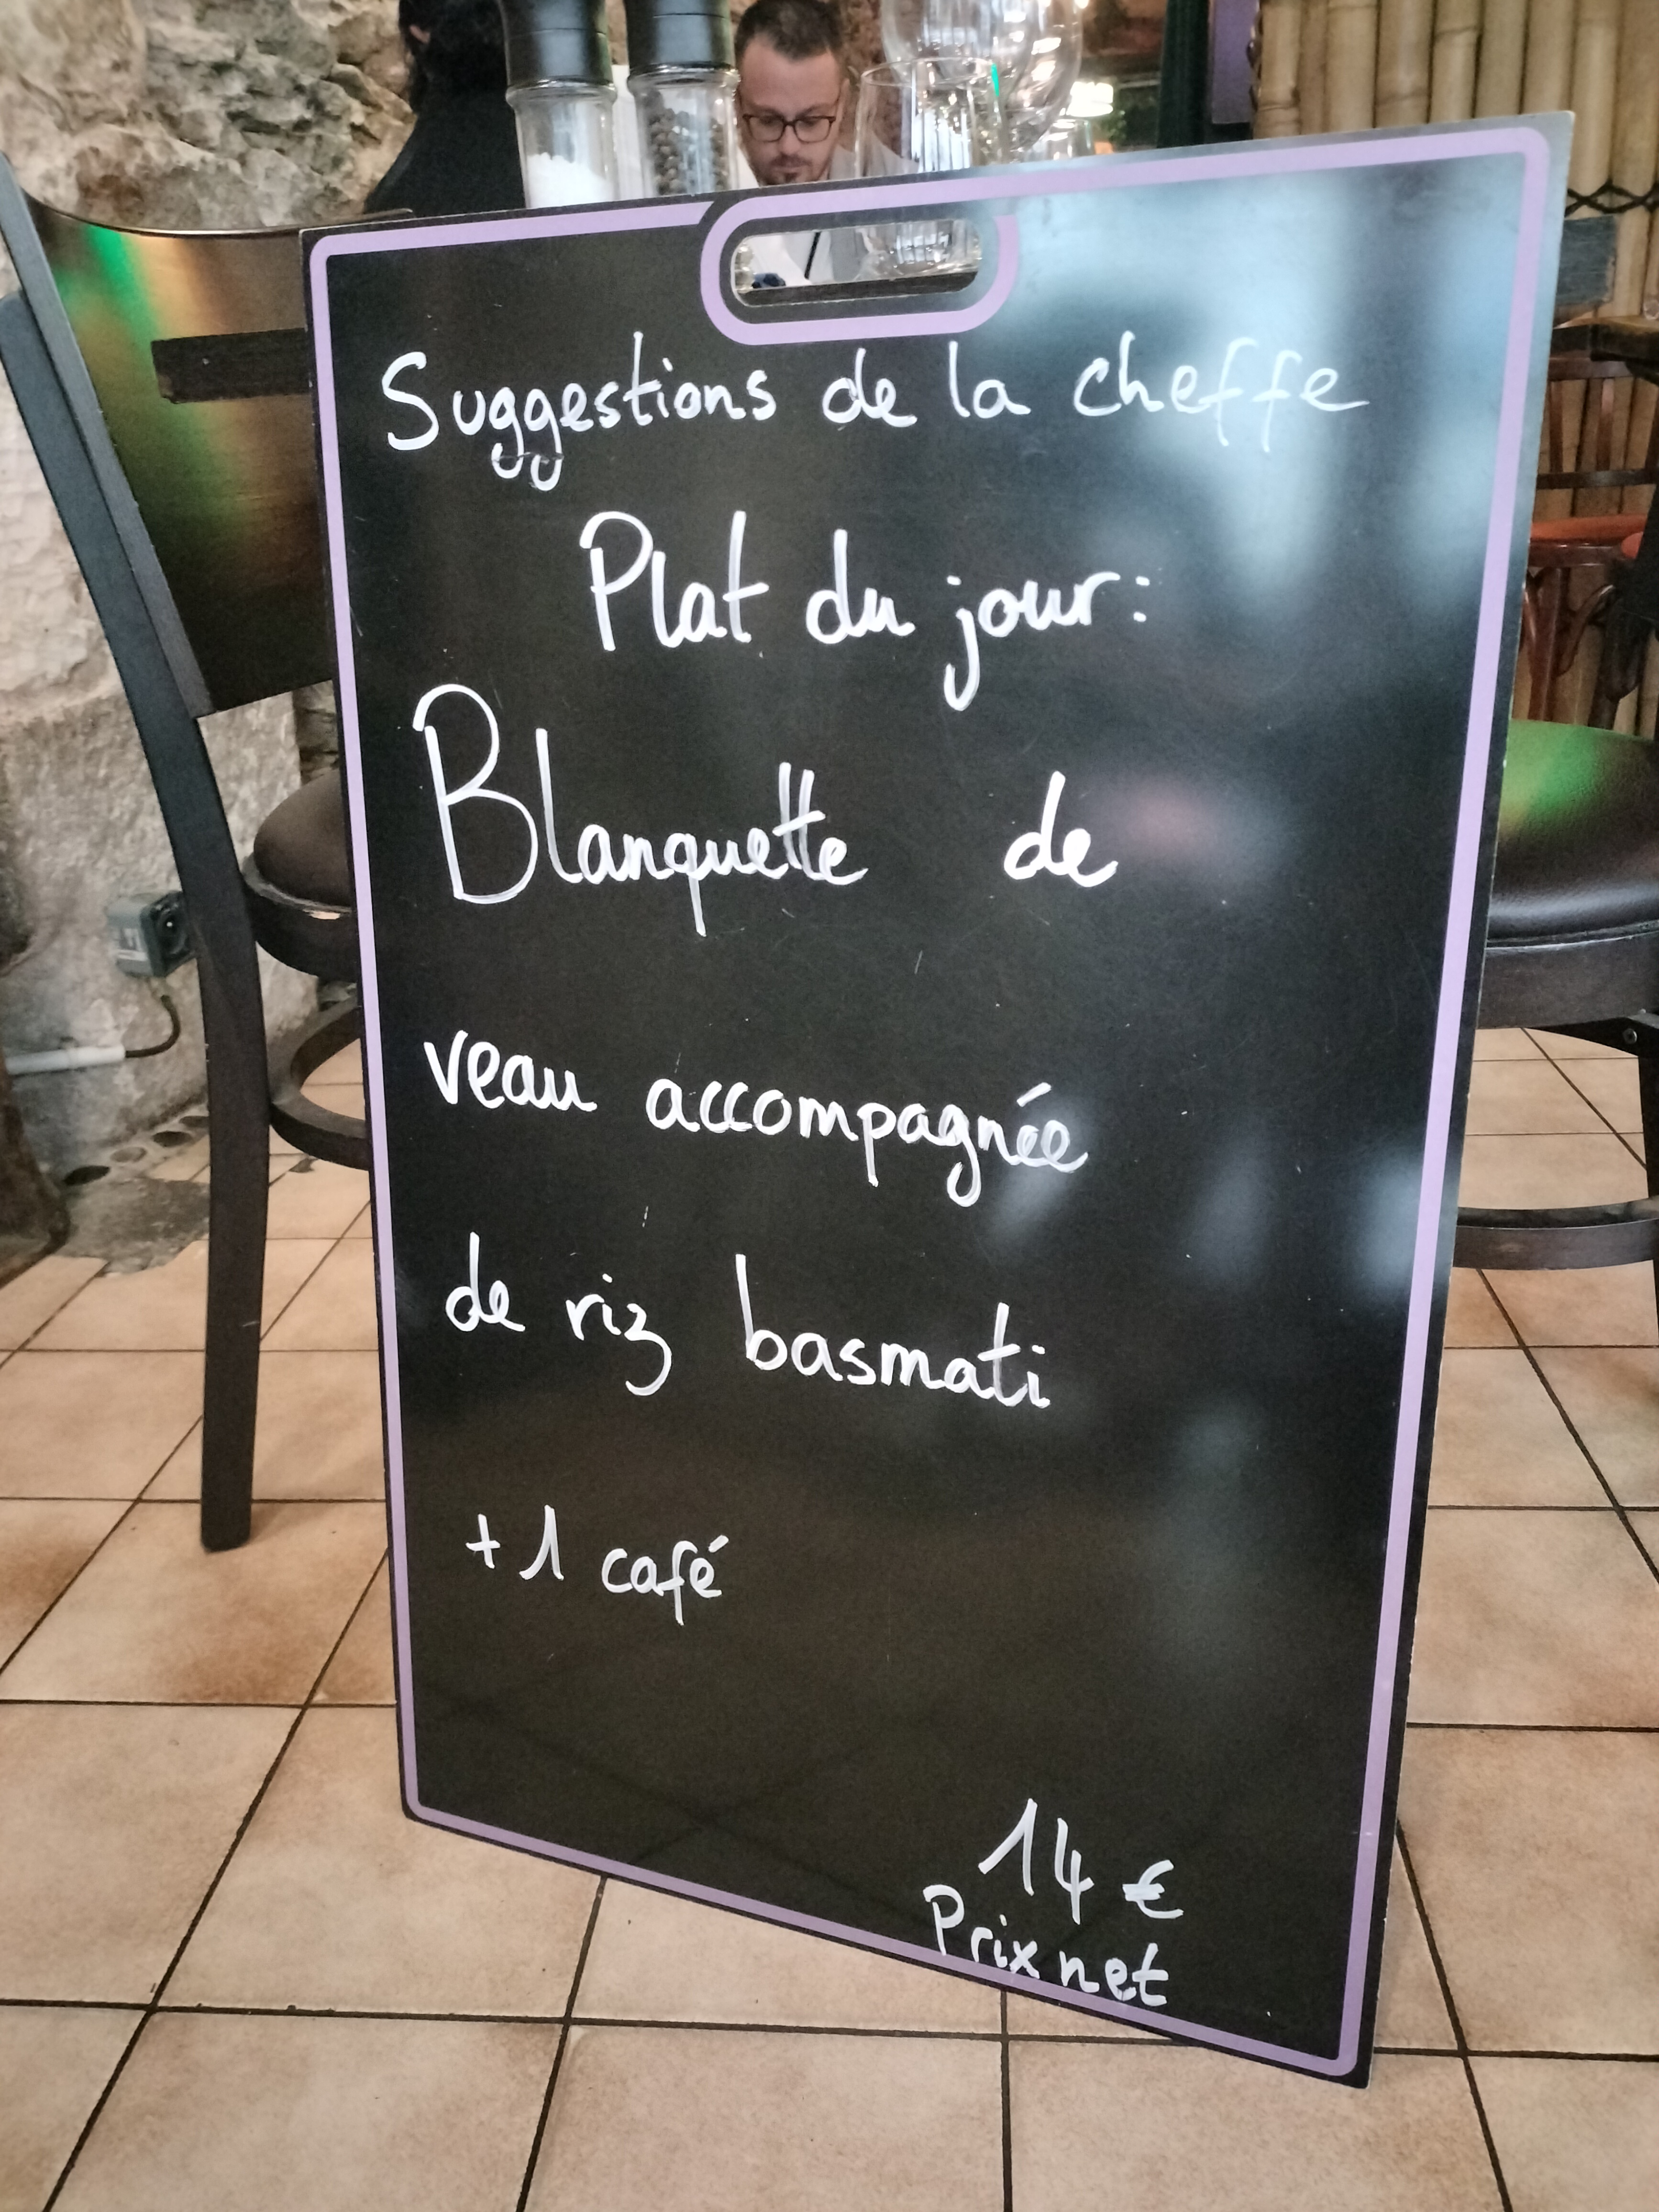 Suggestions de la cheffe
Plat du jour:
Blanquette de
veau accompagnée
de riz basmati
+ 1 café
14 €
Prix net